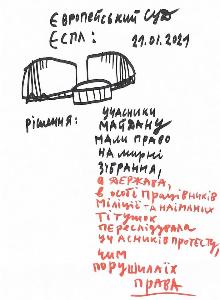 ЄВРОПЕЙСЬКИЙ СУД
ЄСПЛ: 21.01.2021
РІШЕННЯ: УЧАСНИКИ
МАЙДАНУ
МАЛИ ПРАВО
НА МИРНІ
ЗІБРАННЯ,
А ДЕРЖАВА,
В ОСОБІ ПРАЦІВНИКІВ
МІЛІЦІЇ ТА НАЙМАНИХ
ТІТУШОК
ПЕРЕСЛІДУВАЛА
УЧАСНИКІВ ПРОТЕСТУ,
ЧИМ
ПОРУШИЛА ЇХ
ПРАВА